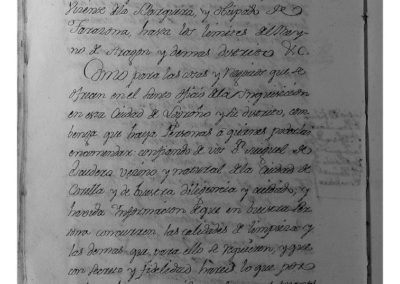 Vicente de la Barquera, y Obispado de
Tarazona, hasta los limites del Reyno
no de Aragon y demas districto &c.
Como para las cosas y Negocios que se
ofrecen en el Santo Oficio de la Inquisicion
en esta Ciudad de Logroño y su districto, com
benga que haya Personas á quienes podais
encomendar confiando de vos Dn Miguel de
vecino y natural de la Ciudad de
Corella y de buestra diligencia y cuidado, y
havida Informacion de que en buestra Per
sona concurren las calidades de limpieza y
las demas que para ello se requieren, y que
con secreto y fidelidad hareis lo que, por